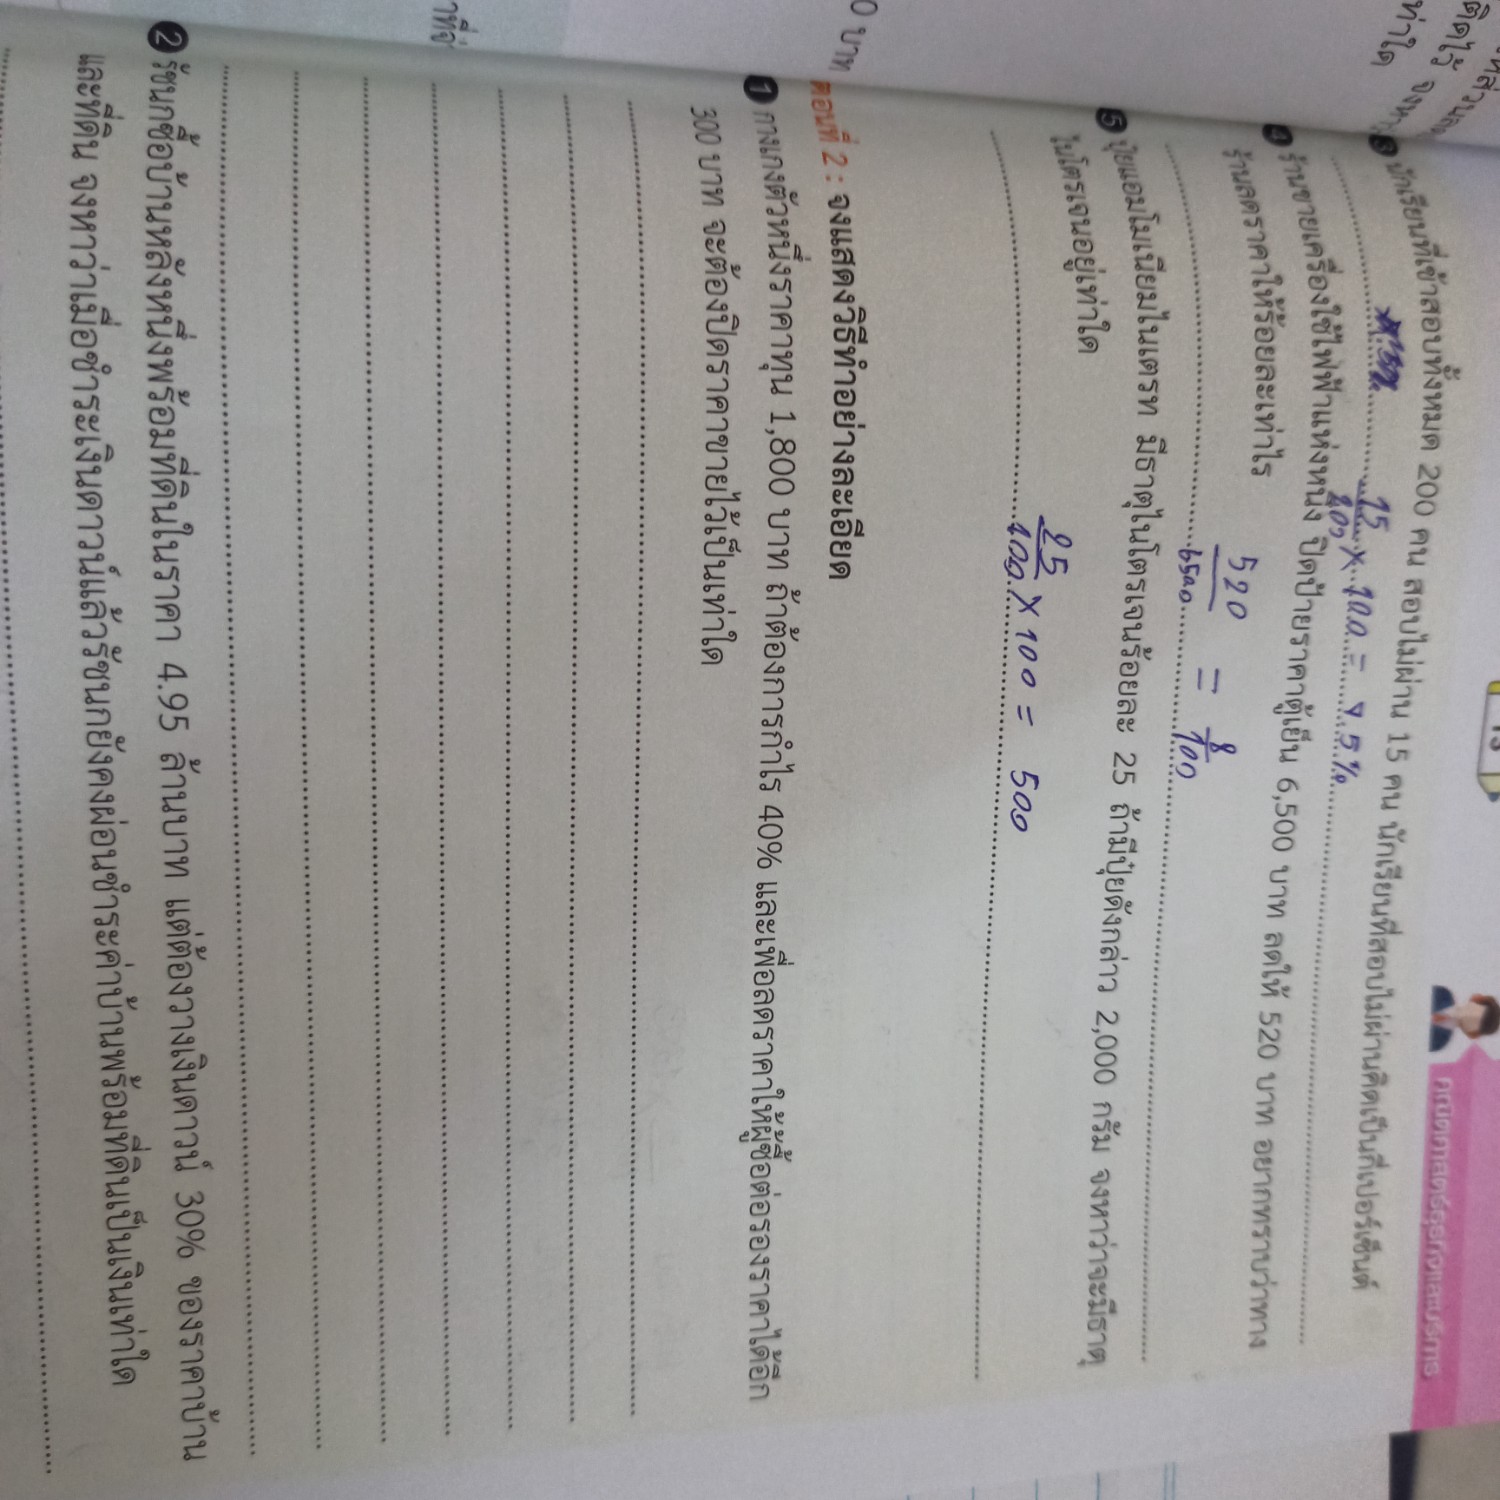 คณิตศาสตร์ธุรกิจและบริการ
ติดไว้ จงหา
ท่าใด
0 บาท
3 นักเรียนที่เข้าสอบทั้งหมด 200 คน สอบไม่ผ่าน 15 คน นักเรียนที่สอบไม่ผ่านคิดเป็นกี่เปอร์เซ็นต์
15/200 × 100 = 7.5%
4 ร้านขายเครื่องใช้ไฟฟ้าแห่งหนึ่ง ปิดป้ายราคาตู้เย็น 6,500 บาท ลดให้ 520 บาท อยากทราบว่าทาง
ร้านลดราคาให้ร้อยละเท่าไร
520/6500 = 8/100
5 ปุ๋ยแอมโมเนียมไนเตรท มีธาตุไนโตรเจนร้อยละ 25 ถ้ามีปุ๋ยดังกล่าว 2,000 กรัม จงหาว่าจะมีธาตุ
ไนโตรเจนอยู่เท่าใด
25/100 × 100 = 500
ตอนที่ 2 : จงแสดงวิธีทำอย่างละเอียด
1 กางเกงตัวหนึ่งราคาทุน 1,800 บาท ถ้าต้องการกำไร 40% และเพื่อลดราคาให้ผู้ซื้อต่อรองราคาได้อีก
300 บาท จะต้องปิดราคาขายไว้เป็นเท่าใด
2 รัชนกซื้อบ้านหลังหนึ่งพร้อมที่ดินในราคา 4.95 ล้านบาท แต่ต้องวางเงินดาวน์ 30% ของราคาบ้าน
และที่ดิน จงหาว่าเมื่อชำระเงินดาวน์แล้วรัชนกยังคงผ่อนชำระค่าบ้านพร้อมที่ดินเป็นเงินเท่าใด